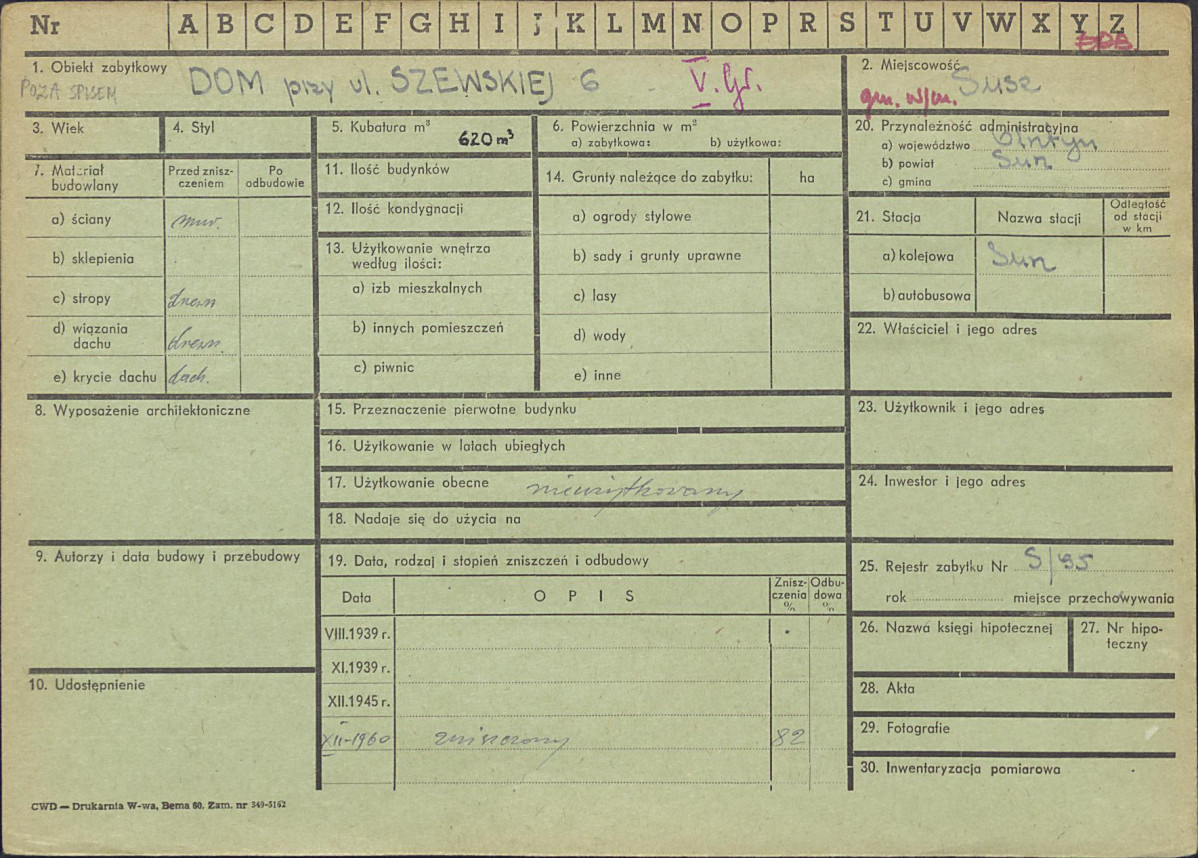 Nr A B C D E F G H I J K L M N O P R S T U V W X Y Z
1. Obiekt zabytkowy DOM przy ul. SZEWSKIEJ 6 V. Gr.
POZA SPISEM
2. Miejscowość Susz
gm. w/m.
3. Wiek
4. Styl
5. Kubatura m³ 620 m³
6. Powierzchnia w m²
a) zabytkowa: b) użytkowa:
7. Materiał budowlany
Przed zniszczeniem
Po odbudowie
a) ściany mur.
b) sklepienia
c) stropy drewn
d) wiązania dachu drewn.
e) krycie dachu dach.
8. Wyposażenie architektoniczne
9. Autorzy i data budowy i przebudowy
10. Udostępnienie
11. Ilość budynków
12. Ilość kondygnacji
13. Użytkowanie wnętrza
według ilości:
a) izb mieszkalnych
b) innych pomieszczeń
c) piwnic
14. Grunty należące do zabytku: ha
a) ogrody stylowe
b) sady i grunty uprawne
c) lasy
d) wody
e) inne
15. Przeznaczenie pierwotne budynku
16. Użytkowanie w latach ubiegłych
17. Użytkowanie obecne nieużytkowany
18. Nadaje się do użycia na
19. Data, rodzaj i stopień zniszczeń i odbudowy
Data OPIS Zniszczenia % Odbudowa %
VIII.1939 r.
XI.1939 r.
XII.1945 r.
XII-1960 zniszczony 82
20. Przynależność administracyjna
a) województwo Olsztyn
b) powiat Susz
c) gmina
21. Stacja Nazwa stacji Odległość od stacji w km
a) kolejowa Susz
b) autobusowa
22. Właściciel i jego adres
23. Użytkownik i jego adres
24. Inwestor i jego adres
25. Rejestr zabytku Nr S/95
rok miejsce przechowywania
26. Nazwa księgi hipotecznej
27. Nr hipoteczny
28. Akta
29. Fotografie
30. Inwentaryzacja pomiarowa
CWD — Drukarnia W-wa, Bema 60. Zam. nr 349-5162